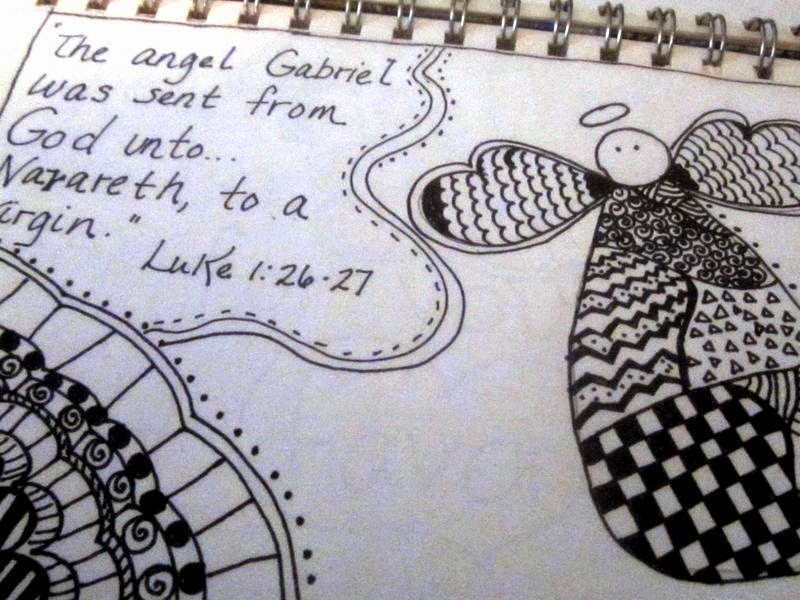 "The angel Gabriel
was sent from
God unto...
Nazareth, to a
irgin."
Luke 1:26-27